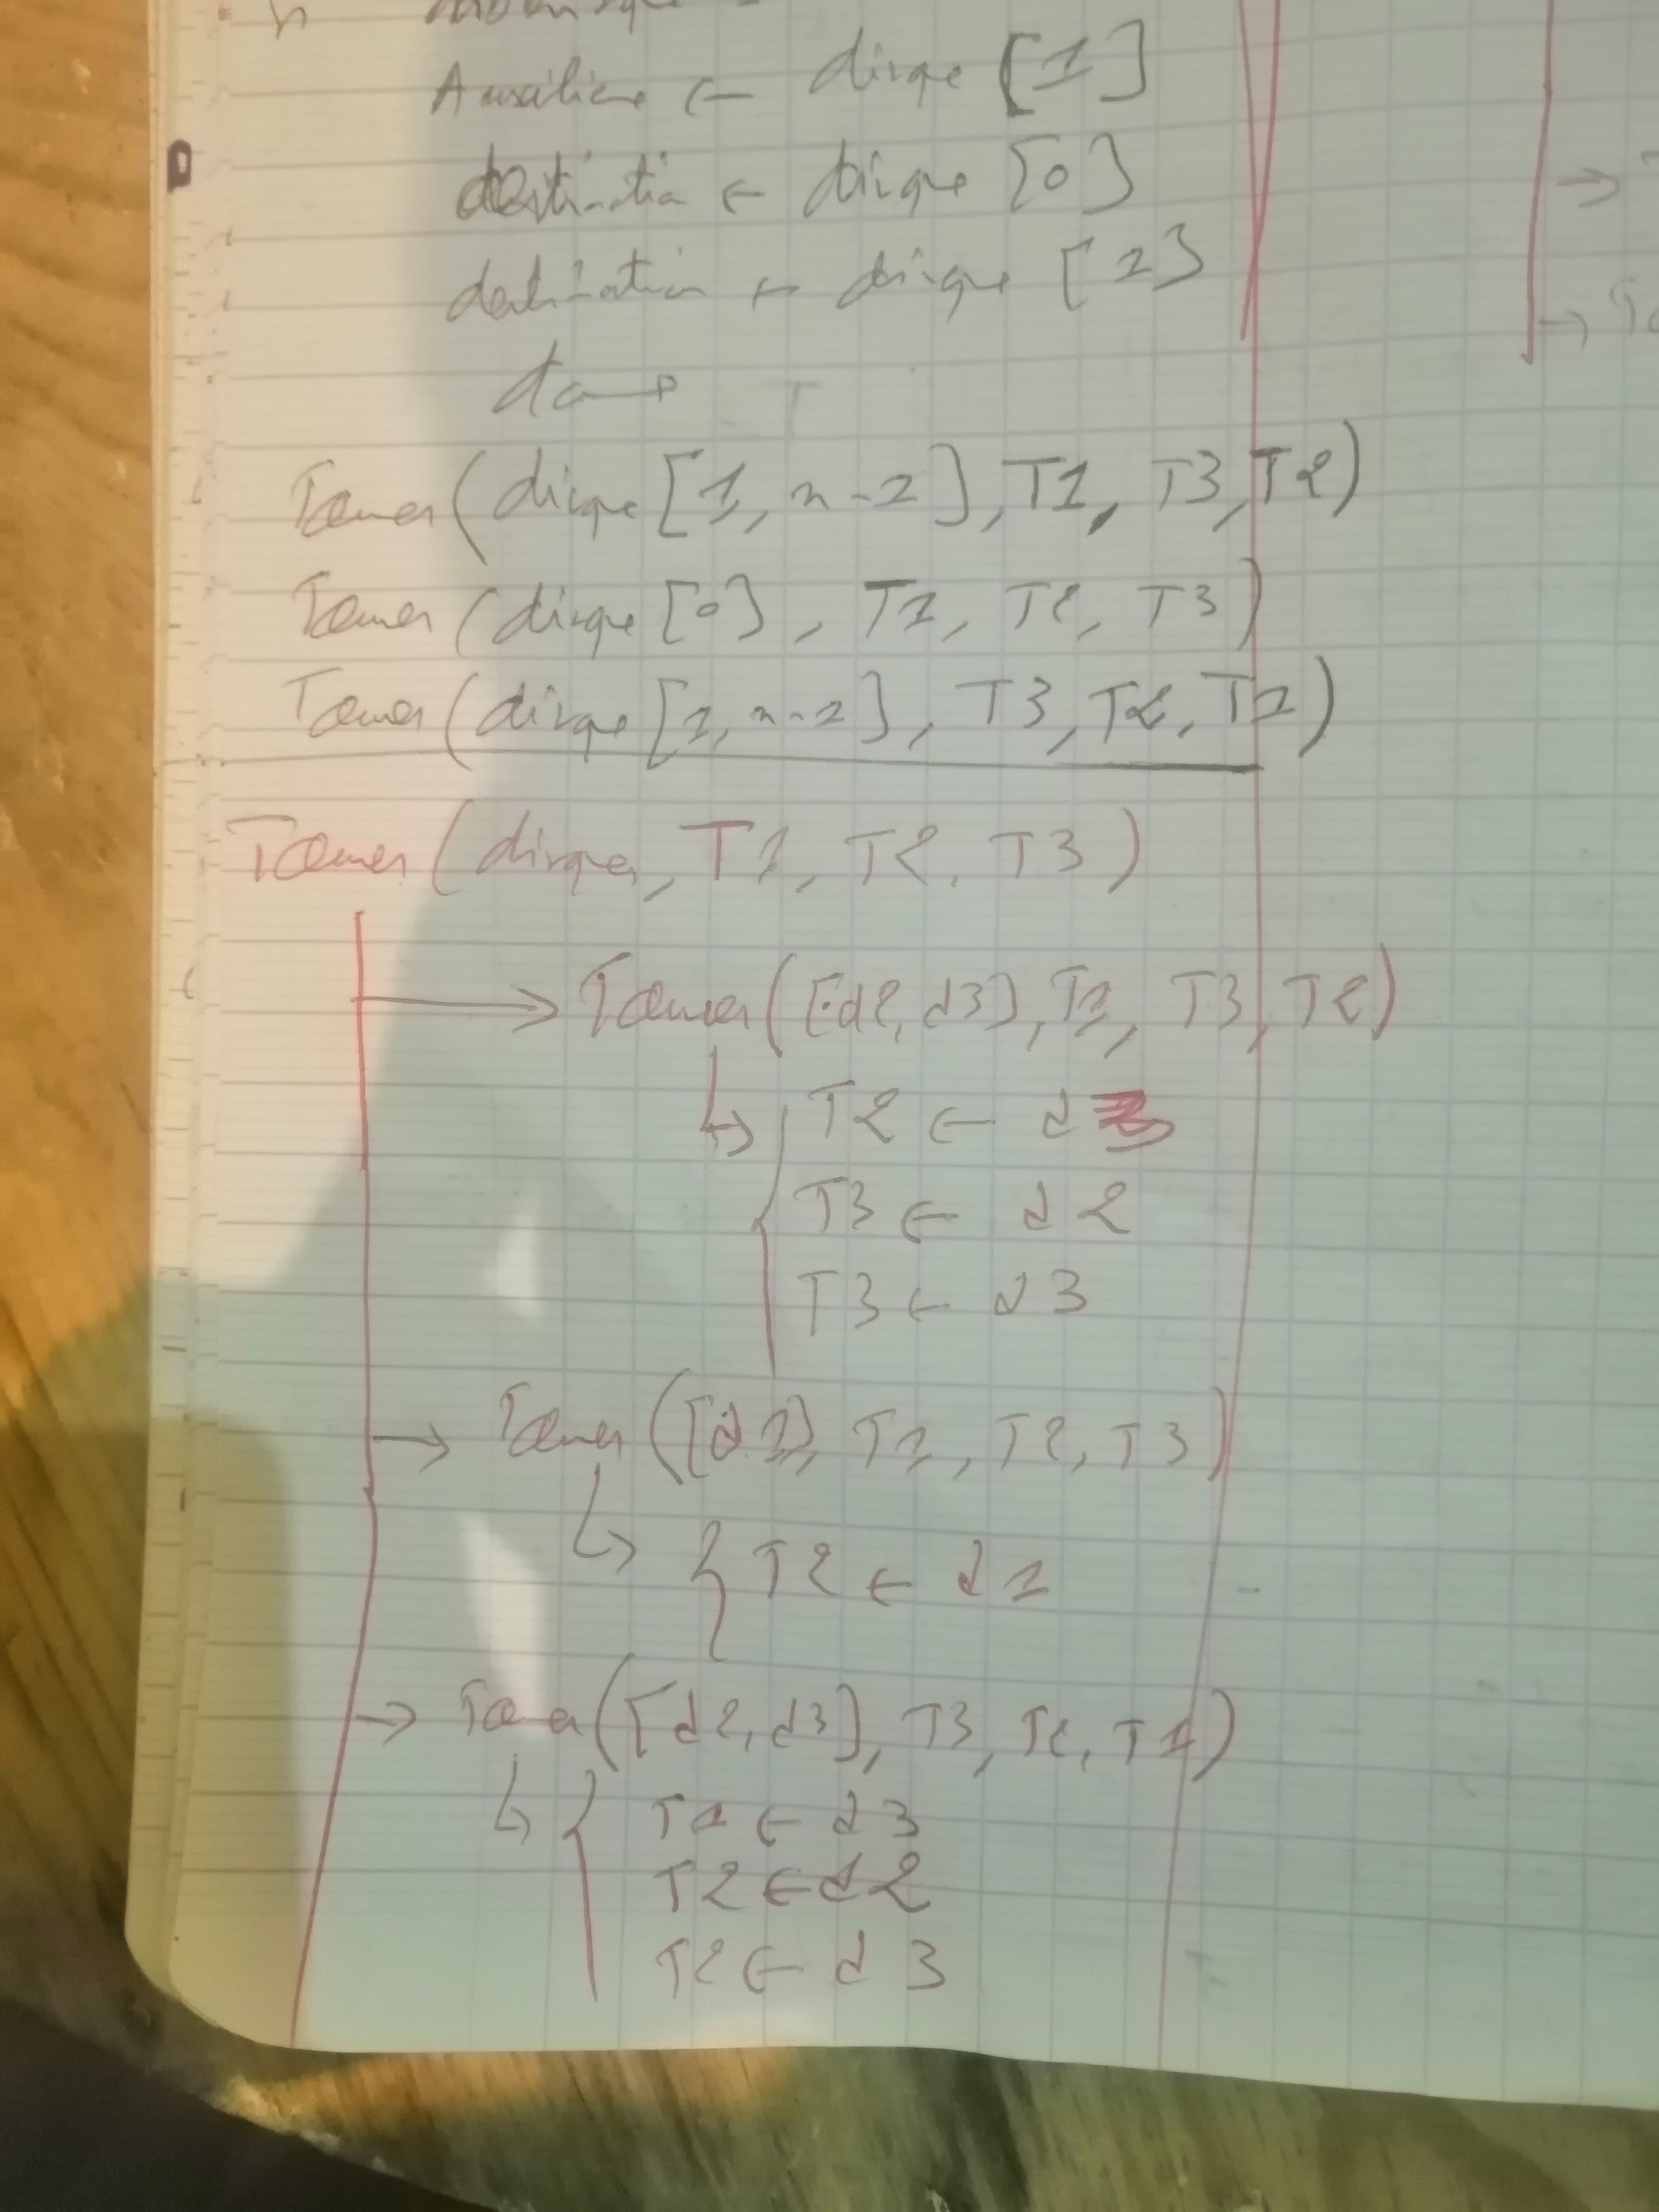 Auxiliaire ← disque [1]
destination ← disque [0]
destination ← disque [1]
donc
Tower (disque [1, n-1], T1, T3, T2)
Tower (disque [0], T1, T2, T3)
Tower (disque [1, n-1], T3, T2, T1)
Tower (disques, T1, T2, T3)
→ Tower ([d2, d3], T1, T3, T2)
↳ T2 ← d3
T3 ← d2
T3 ← d3
→ Tower ([d1], T1, T2, T3)
↳ { T2 ← d1
→ Tower ([d2, d3], T3, T2, T1)
↳ { T1 ← d3
T2 ← d2
T2 ← d3